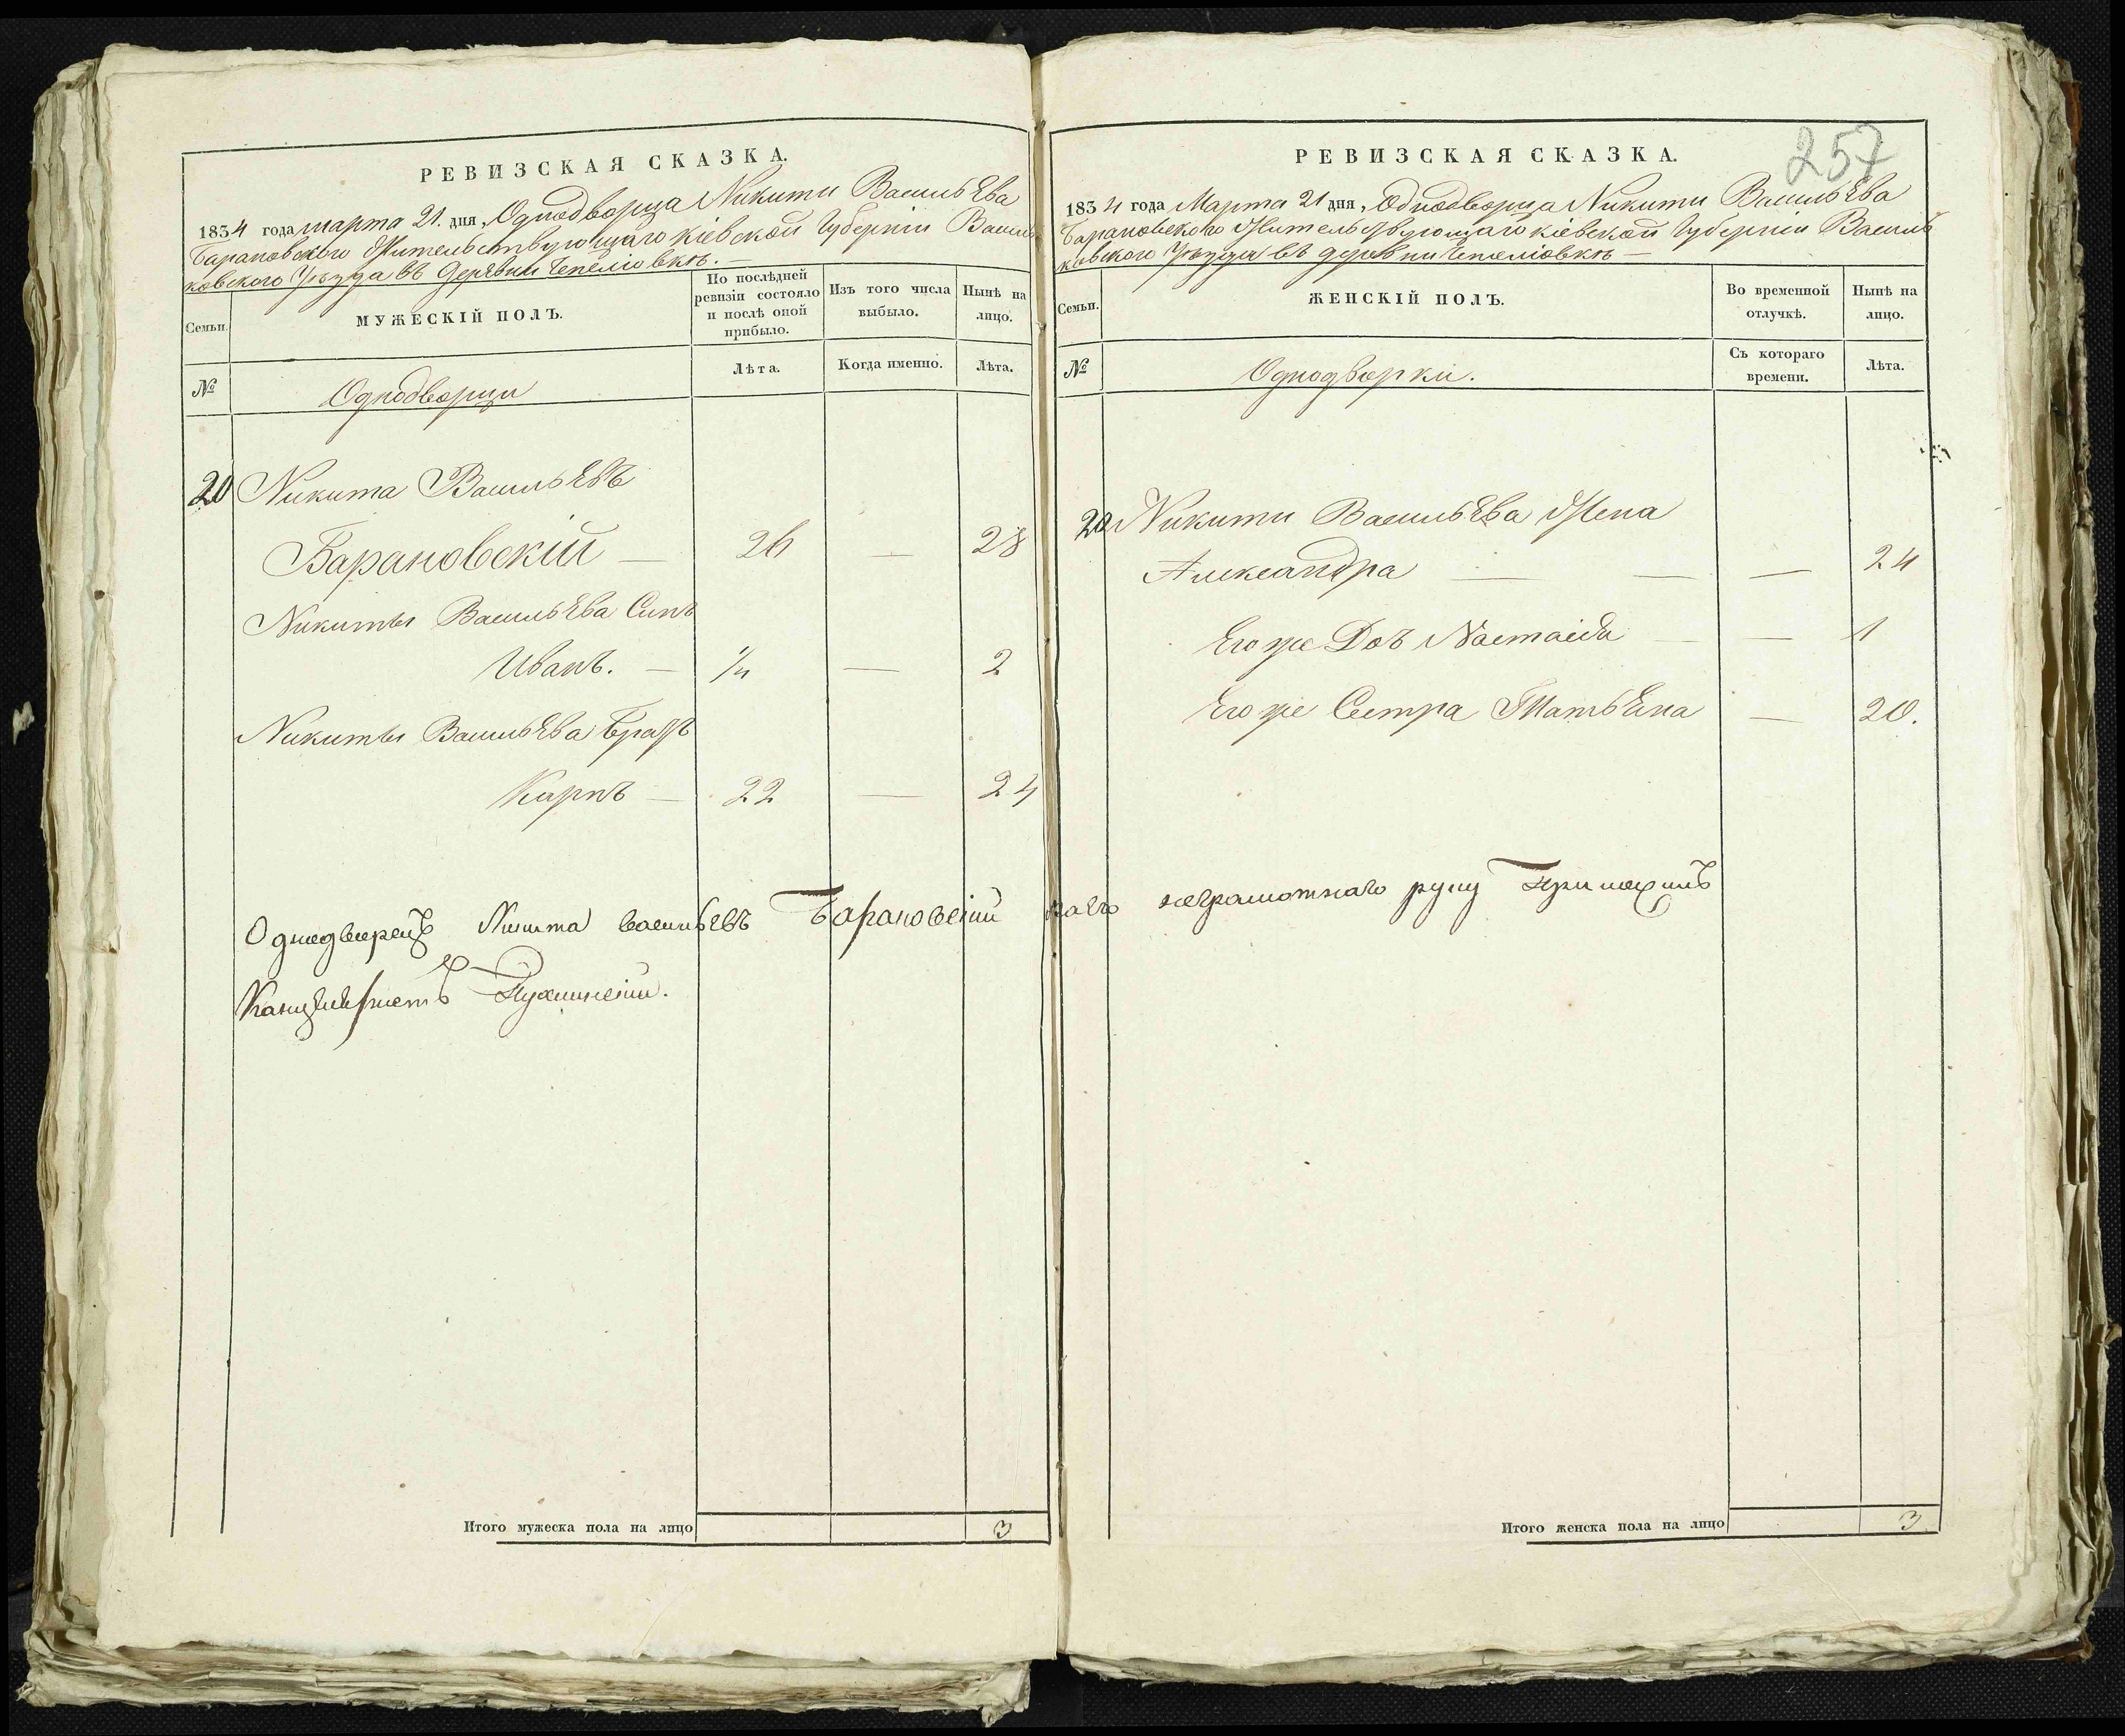 РЕВИЗСКАЯ СКАЗКА.
1834 года марта 21. дня, Однодворца Никити Васильева
Барановского Жительствующаго Кіевской Губерніи Василь
ковского Уѣзда въ деревни
Семьи.
МУЖЕСКІЙ ПОЛЪ.
По послѣдней ревизіи состояло и послѣ оной прибыло.
Изъ того числа выбыло.
Нынѣ на лицо.
№
Однодворци
Лѣта.
Когда именно.
Лѣта.
20 Никита Васильевъ
Барановскій — 26 — 28
Никиты Васильева Синъ
Иванъ. — 1/4 — 2
Никиты Васильева Братъ
Карпъ — 22 — 24
Однодворецъ Никита васильевъ Барановскій
Канцеляристъ
Итого мужеска пола на лицо 3
257
РЕВИЗСКАЯ СКАЗКА.
1834 года Марта 21 дня, Однодворца Никити Васильева
Барановского Жительствующаго Кіевской Губерніи Василь
ковского Уѣзда въ деревни
Семьи.
ЖЕНСКІЙ ПОЛЪ.
Во временной отлучкѣ.
Нынѣ на лицо.
№
Однодворки.
Съ котораго времени.
Лѣта.
20 Никити Васильева Жена
Александра — — — 24
Его же Дочь — — 1
Его же Сестра Татьяна — 20.
неграмотнаго руку Приложилъ
Итого женска пола на лицо 3